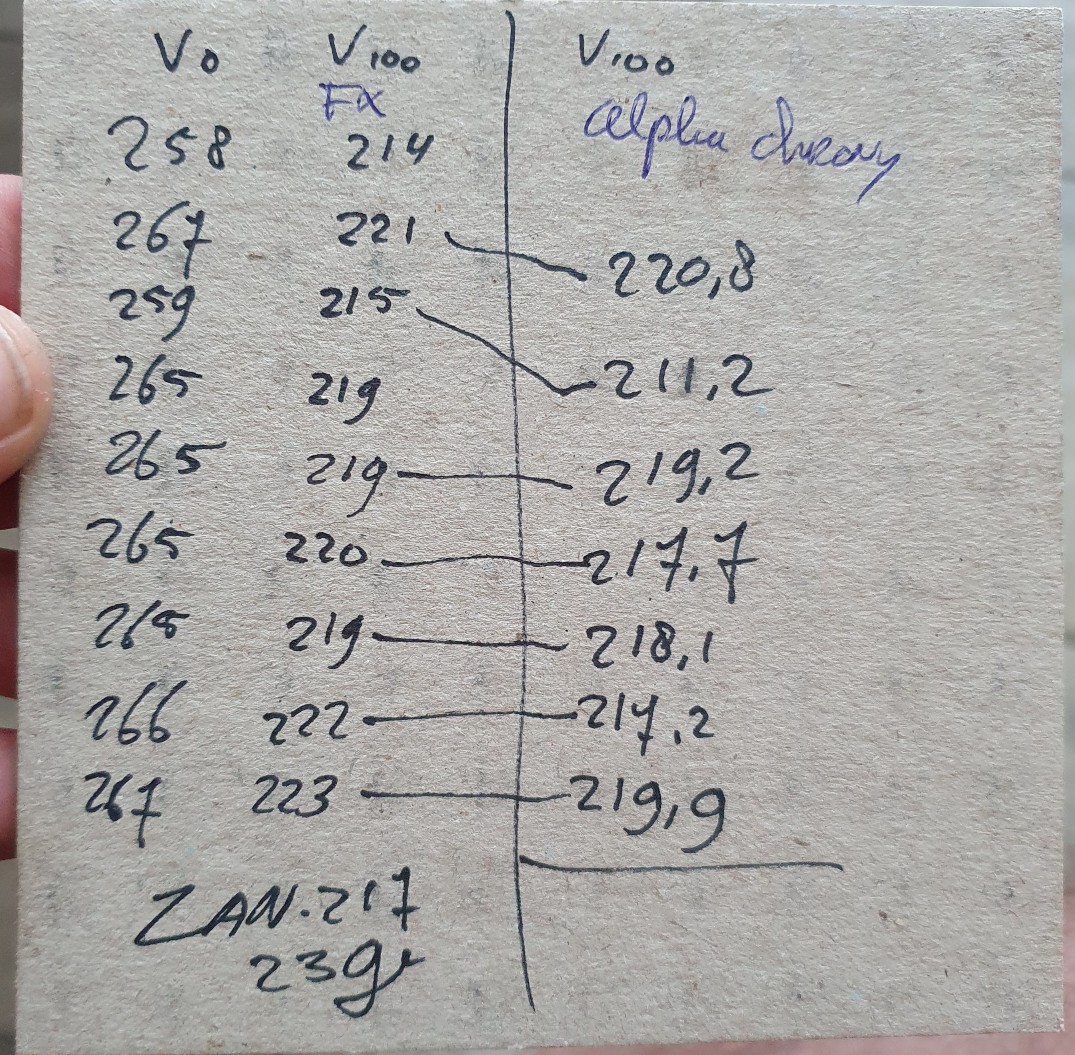 V0 V100 V100
FX alpha chrony
258 214
267 221 220,8
259 215 211,2
265 219
265 219 219,2
265 220 217,7
265 219 218,1
266 222 217,2
267 223 219,9
ZAN.217
23gr